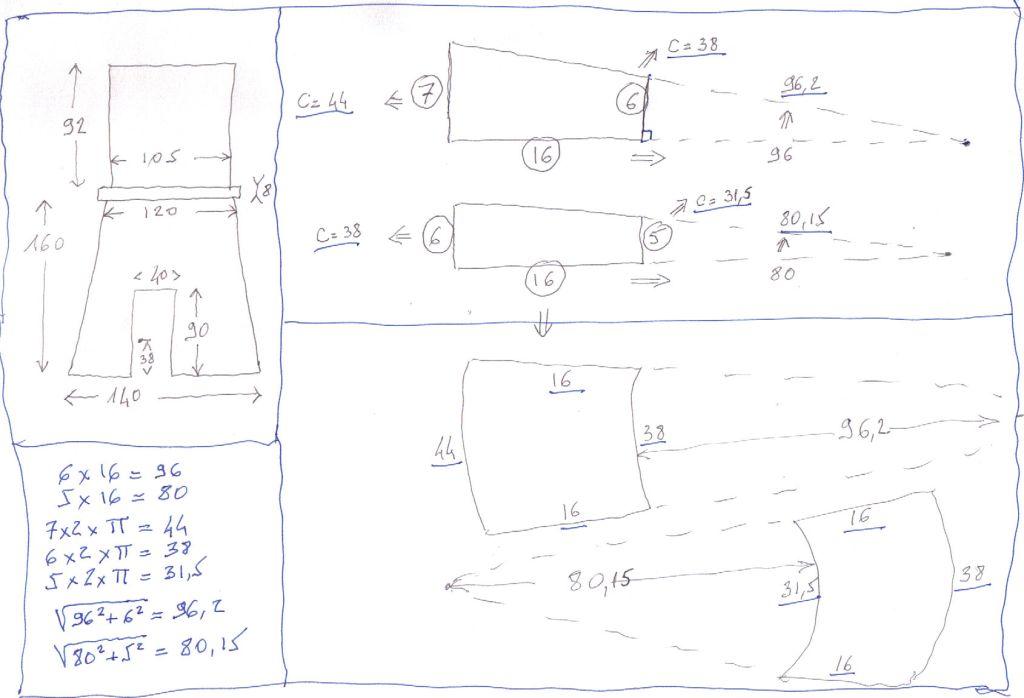 92
105
8
120
160
40
90
38
140
6 x 16 = 96
5 x 16 = 80
7x2 x π = 44
6 x2 x π = 38
5 x 2 x π = 31,5
√96²+6² = 96,2
√80²+5² = 80,15
C = 38
C= 44 ⇐ 7
6
96,2
16 ⇒ 96
C = 31,5
C= 38 ⇐ 6
5
80,15
16 ⇒ 80
16
44
38
96,2
16
16
80,15
31,5
38
16